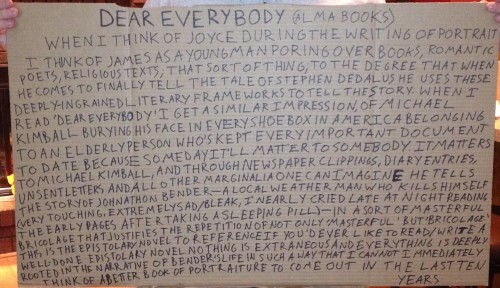 DEAR EVERYBODY (ALMA BOOKS)
WHEN I THINK OF JOYCE DURING THE WRITING OF PORTRAIT
I THINK OF JAMES AS A YOUNG MAN PORING OVER BOOKS, ROMANTIC
POETS, RELIGIOUS TEXTS, THAT SORT OF THING, TO THE DEGREE THAT WHEN
HE COMES TO FINALLY TELL THE TALE OF STEPHEN DEDALUS HE USES THESE
DEEPLY INGRAINED LITERARY FRAMEWORKS TO TELL THE STORY. WHEN I
READ 'DEAR EVERYBODY' I GET A SIMILAR IMPRESSION, OF MICHAEL
KIMBALL BURYING HIS FACE IN EVERY SHOEBOX IN AMERICA BELONGING
TO AN ELDERLY PERSON WHO'S KEPT EVERY IMPORTANT DOCUMENT
TO DATE BECAUSE SOMEDAY IT'LL MATTER TO SOMEBODY IT MATTERS
TO MICHAEL KIMBALL, AND THROUGH NEWSPAPER CLIPPINGS, DIARY ENTRIES,
UNSENT LETTERS AND ALL OTHER MARGINALIA ONE CAN IMAGINE HE TELLS
THE STORY OF JOHNATHON BENDER—A LOCAL WEATHER MAN WHO KILLS HIMSELF
(VERY TOUCHING, EXTREMELY SAD/BLEAK, I NEARLY CRIED LATE AT NIGHT READING
THE EARLY PAGES AFTER TAKING A SLEEPING PILL)—IN A SORT OF MASTERFUL
BRICOLAGE THAT JUSTIFIES THE REPETITION OF NOT ONLY 'MASTERFUL' BUT 'BRICOLAGE'
THIS IS THE EPISTOLARY NOVEL TO REFERENCE IF YOU'D EVER LIKE TO READ/WRITE A
WELL-DONE EPISTOLARY NOVEL NOTHING IS EXTRANEOUS AND EVERYTHING IS DEEPLY
ROOTED IN THE NARRATIVE OF BENDER'S LIFE IN SUCH A WAY THAT I CANNOT IMMEDIATELY
THINK OF A BETTER BOOK OF PORTRAITURE TO COME OUT IN THE LAST TEN
YEARS